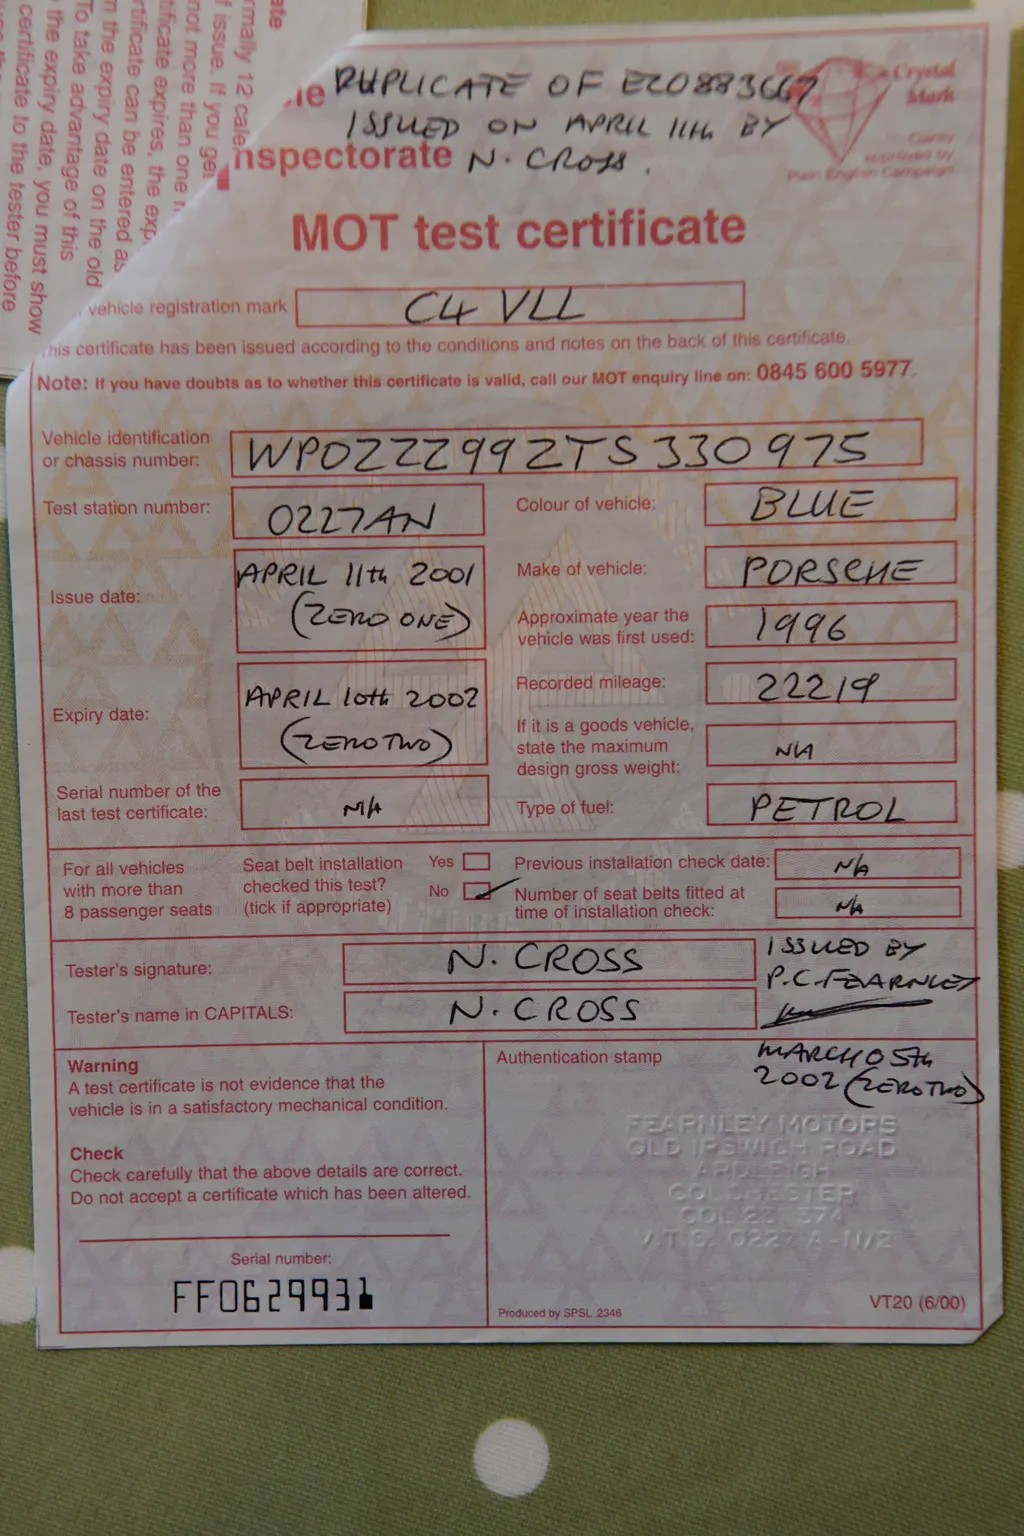 ate
rmally 12 cale
f issue. If you ge
not more than one
tificate expires, the exp
rtificate can be entered as
n the expiry date on the old
To take advantage of this
the expiry date, you must show
certificate to the tester before
DUPLICATE OF EZ0883667
ISSUED ON APRIL 11th BY
nspectorate N. CROSS.
Crystal
Mark
Clarity
approved by
Plain English Campaign
MOT test certificate
vehicle registration mark C4 VLL
his certificate has been issued according to the conditions and notes on the back of this certificate.
Note: If you have doubts as to whether this certificate is valid, call our MOT enquiry line on: 0845 600 5977.
Vehicle identification
or chassis number: WP0ZZZ99ZTS330975
Test station number: 0227AN
Colour of vehicle: BLUE
Issue date: APRIL 11th 2001
(ZERO ONE)
Make of vehicle: PORSCHE
Approximate year the
vehicle was first used: 1996
Expiry date: APRIL 10th 2002
(ZERO TWO)
Recorded mileage: 22219
If it is a goods vehicle,
state the maximum
design gross weight: N/A
Serial number of the
last test certificate: N/A
Type of fuel: PETROL
For all vehicles
with more than
8 passenger seats
Seat belt installation
checked this test?
(tick if appropriate)
Yes
No
Previous installation check date: N/A
Number of seat belts fitted at
time of installation check: N/A
Tester's signature: N. CROSS
Tester's name in CAPITALS: N. CROSS
ISSUED BY
P.C. FEARNLEY
MARCH 05th
2002 (ZERO TWO)
Warning
A test certificate is not evidence that the
vehicle is in a satisfactory mechanical condition.
Check
Check carefully that the above details are correct.
Do not accept a certificate which has been altered.
Serial number:
FF0629931
Authentication stamp
FEARNLEY MOTORS
OLD IPSWICH ROAD
ARDLEIGH
COLCHESTER
COL 231 374
V.T.S. 0227 A-N/2
Produced by SPSL 2346
VT20 (6/00)